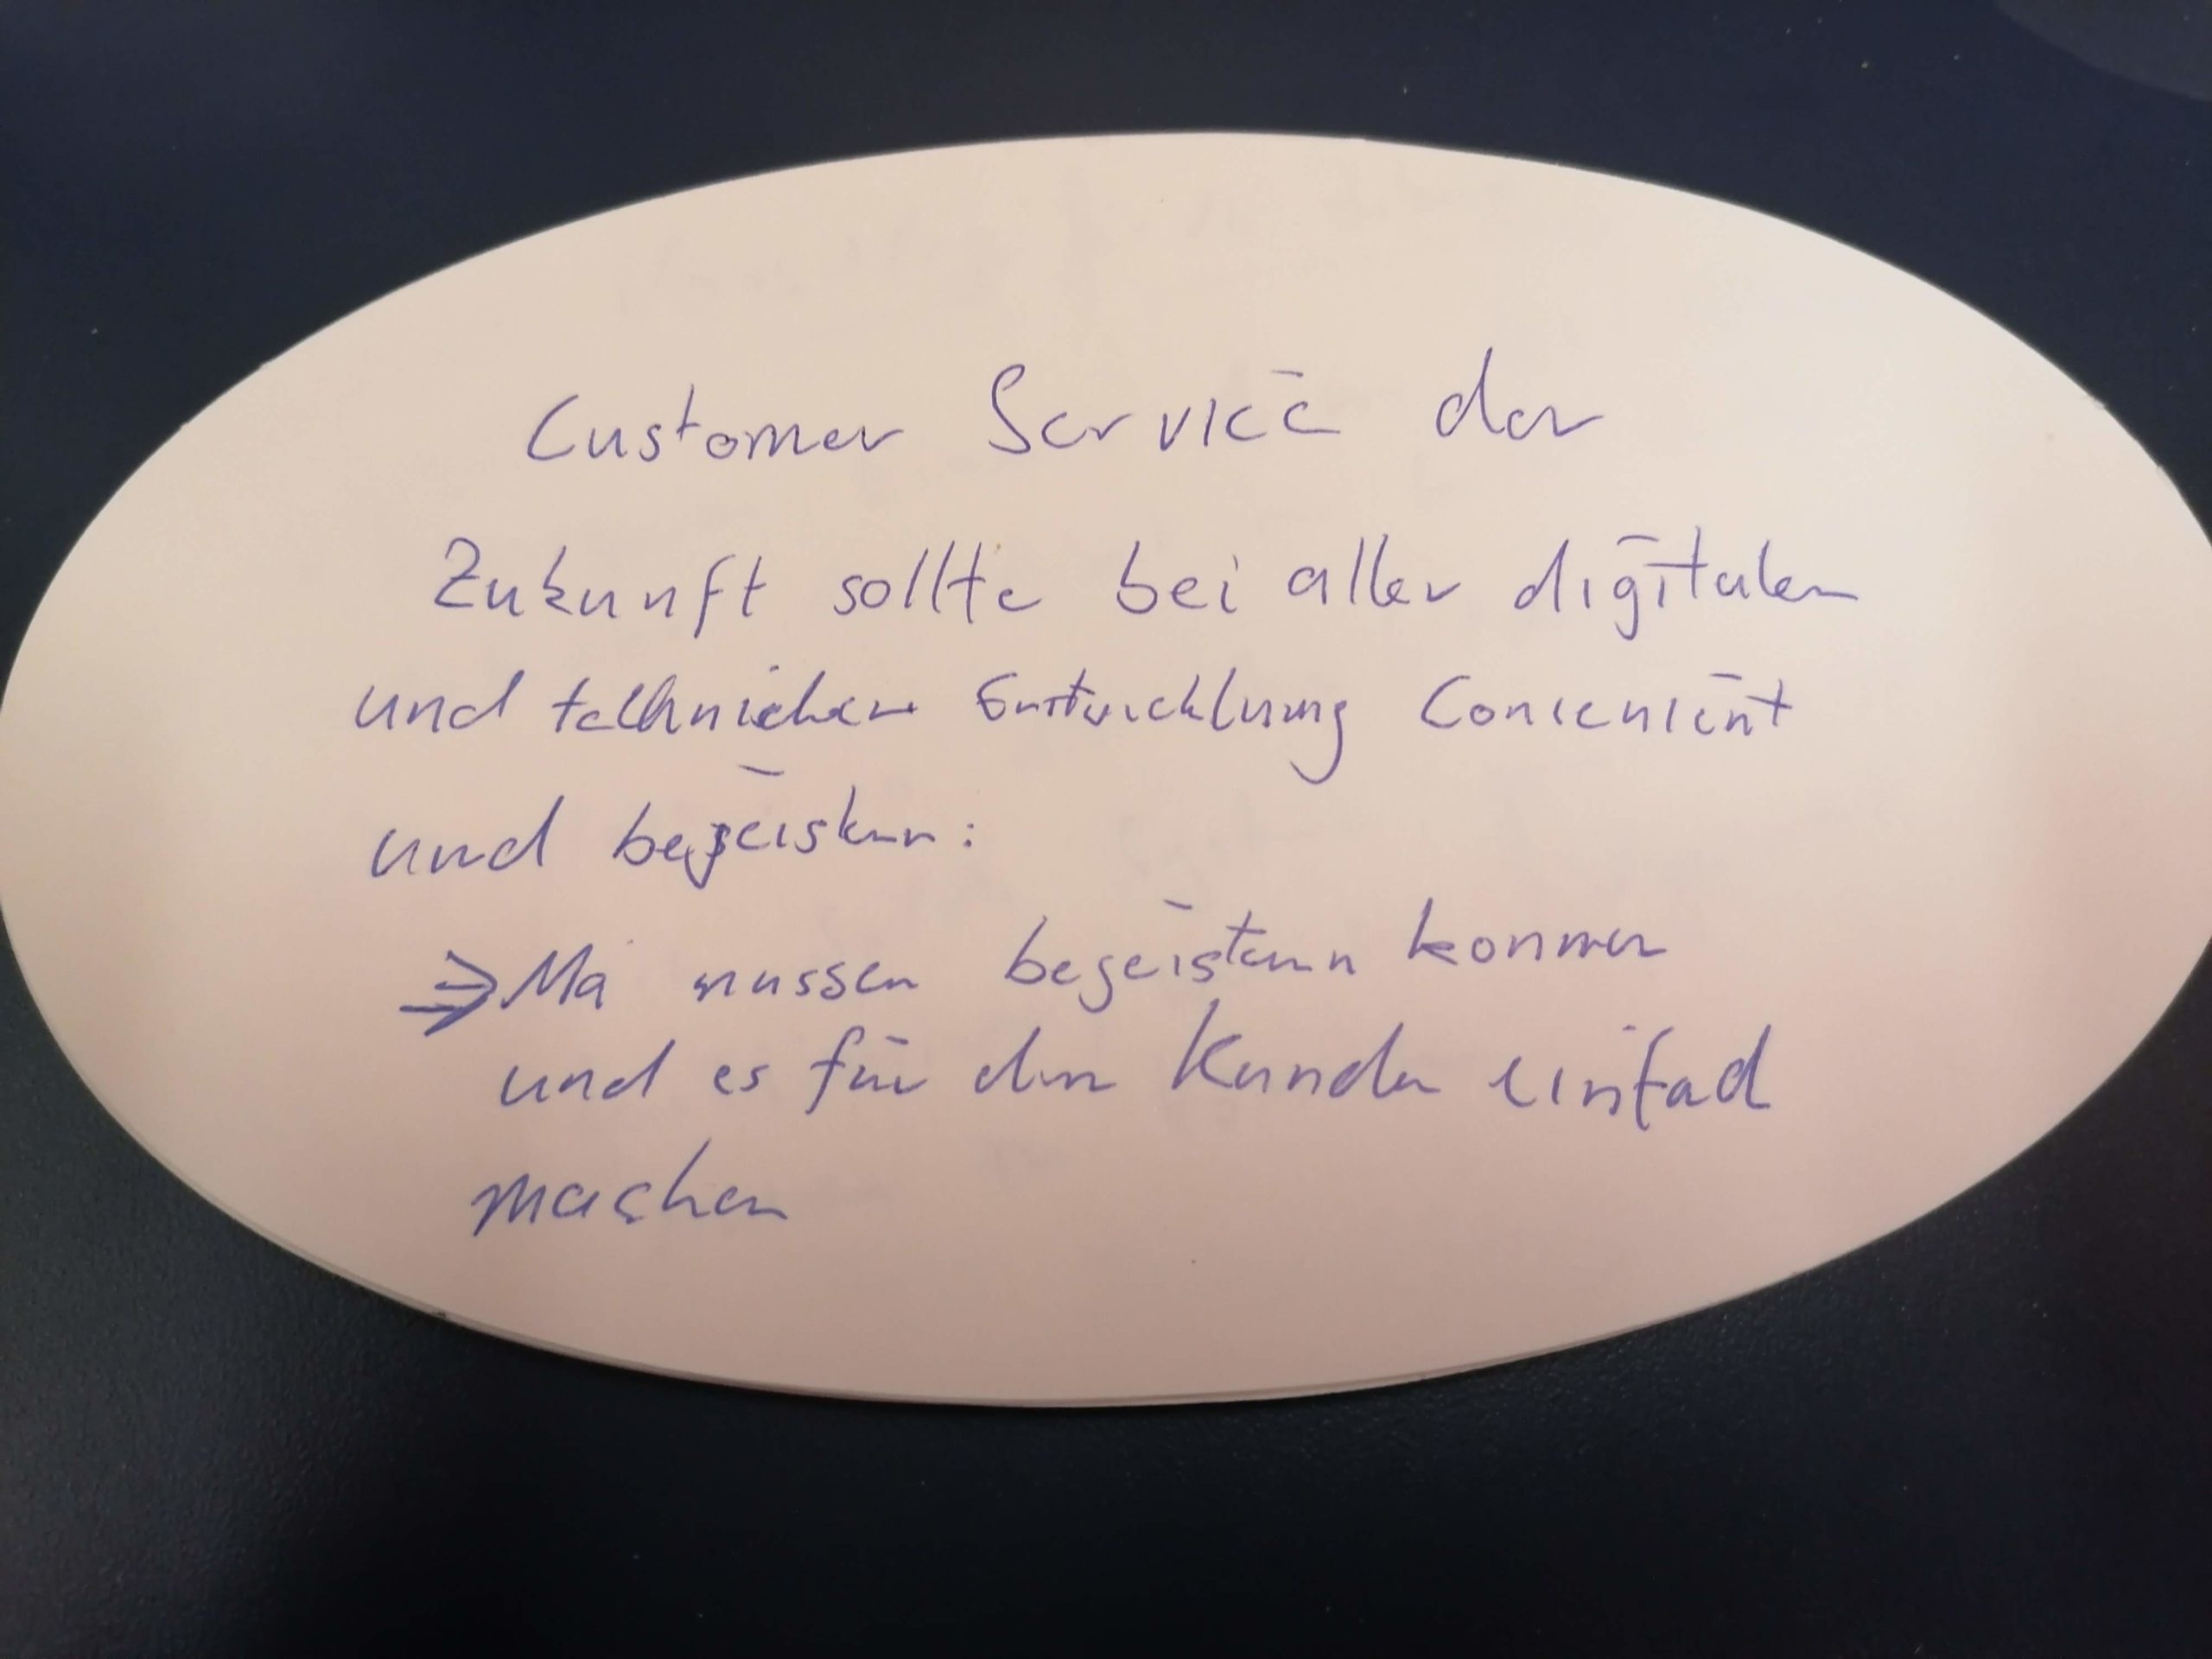 Customer Service der
Zukunft sollte bei aller digitalen
und technichen Entwicklung Convenient
und begeistern:
⇒ Ma mussen begeistern konnen
und es für den Kunden einfach
machen